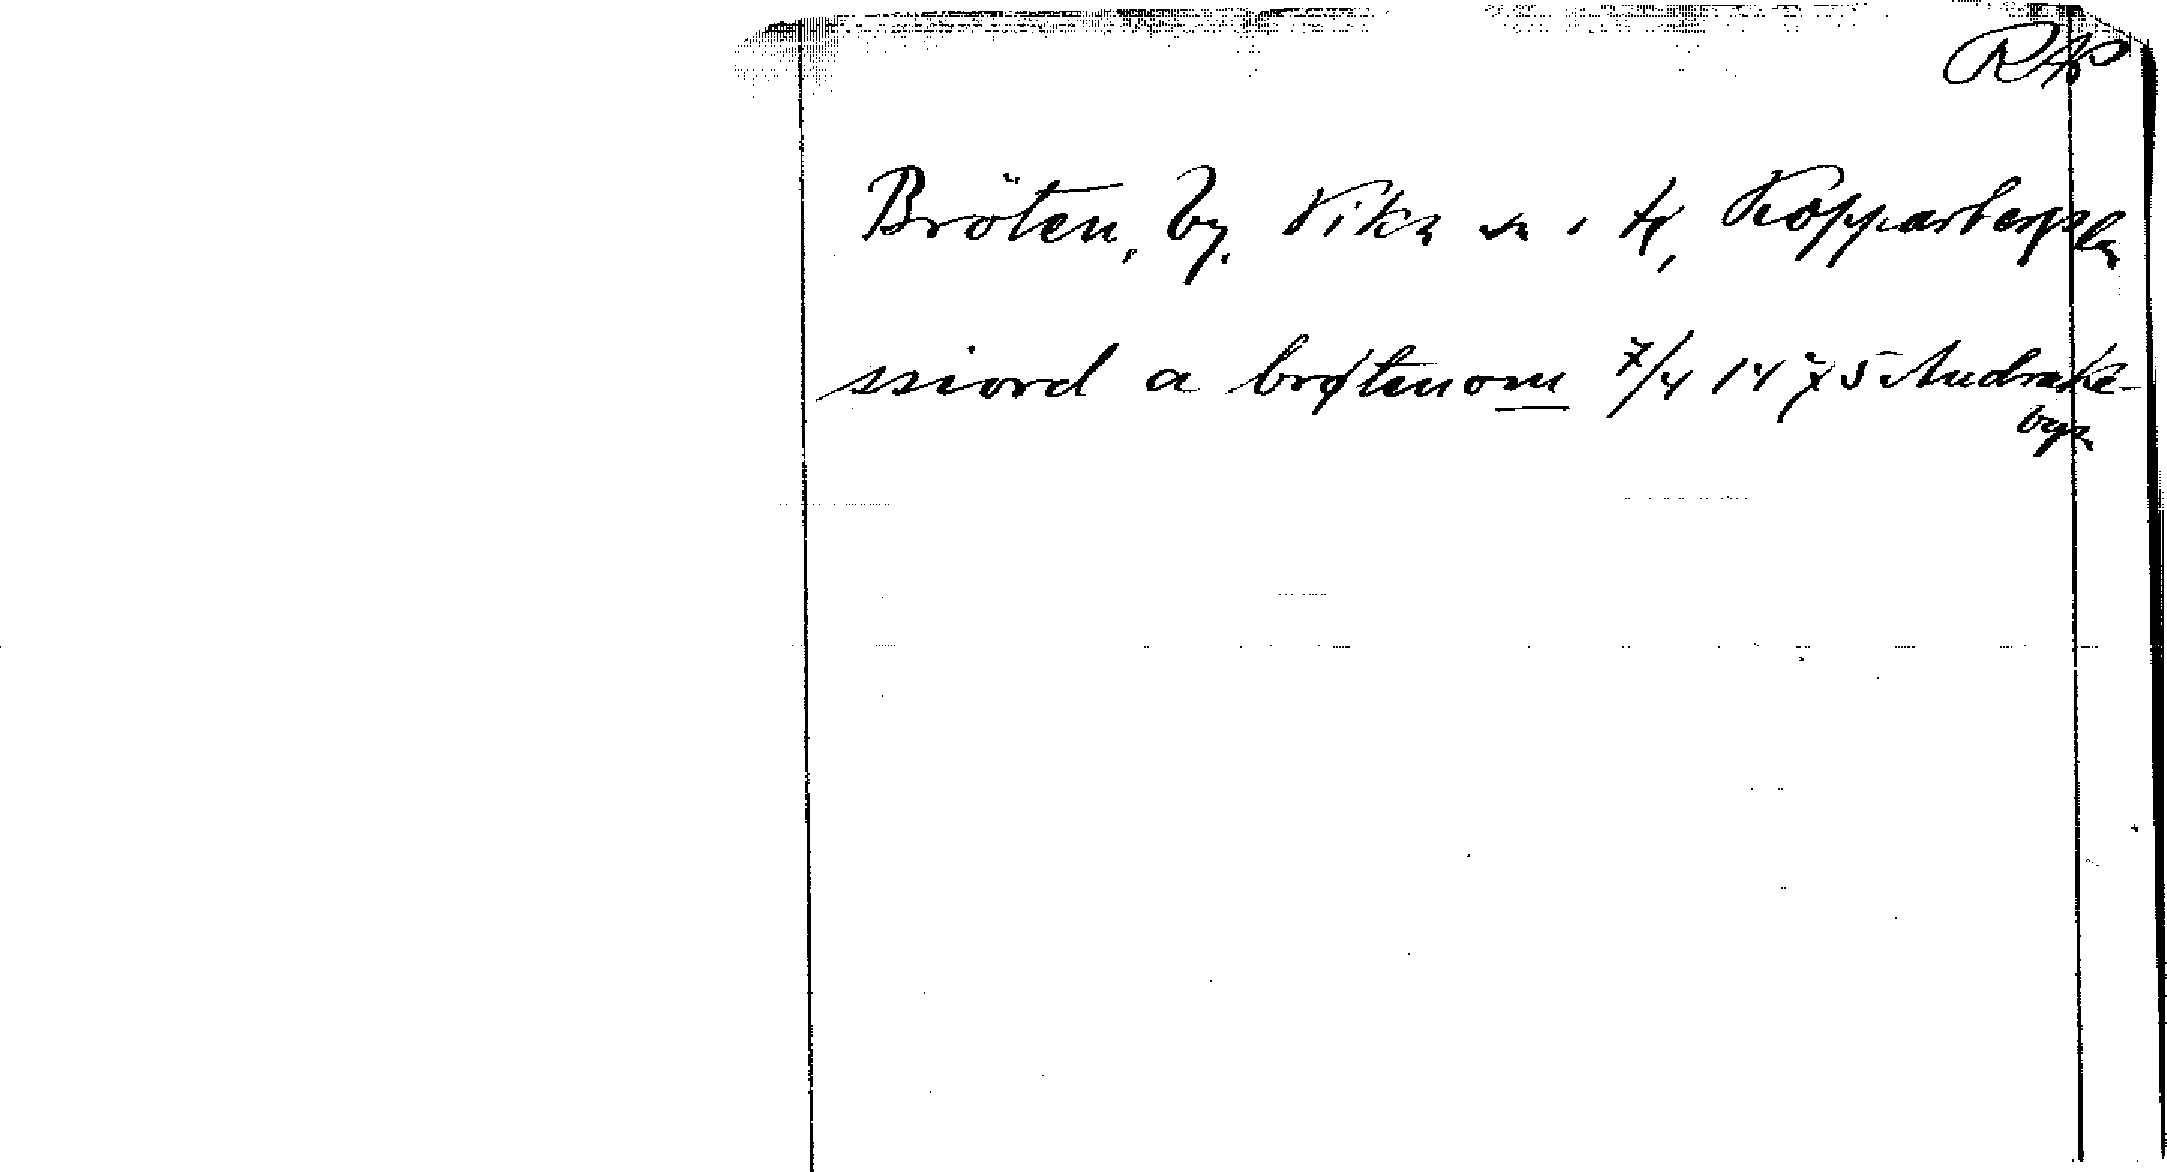 RAP
Bröten, by. Vika sn o. hd, Kopparbergs ln
ssiord a brøtenom 7/4 1475 Andrake-
byn